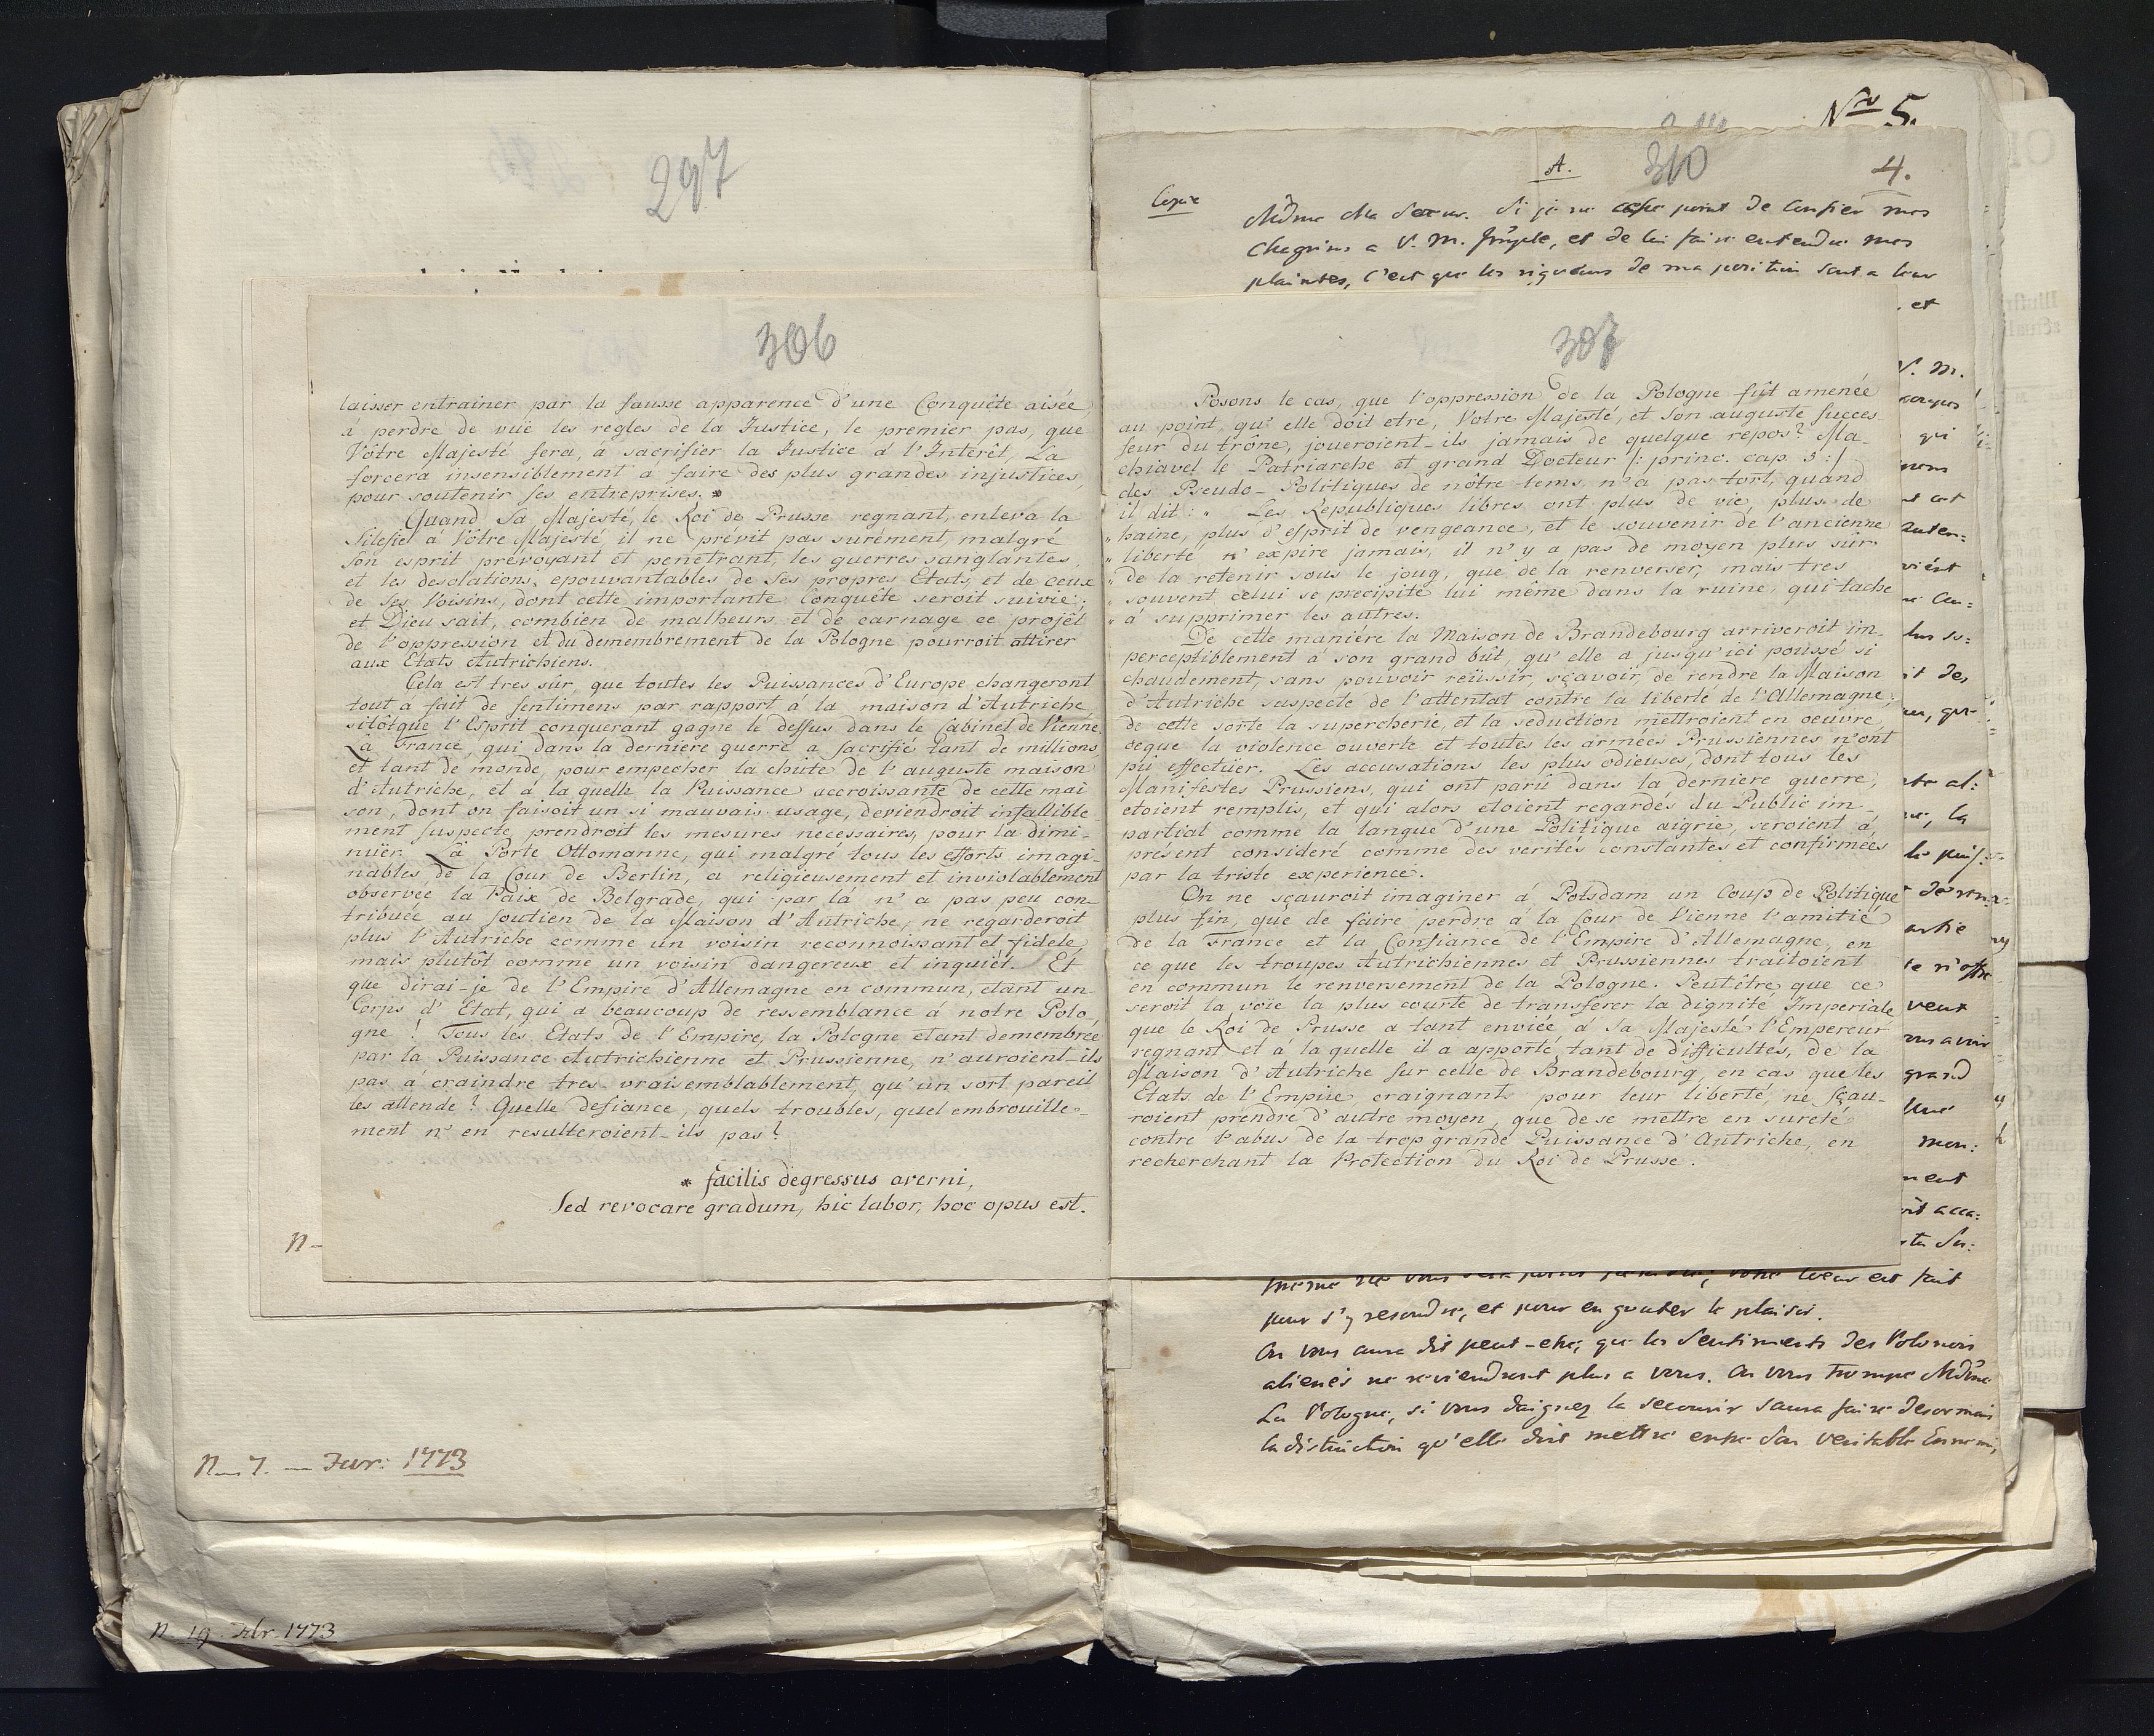 297
306
laisser entrainer par la fausse apparence d'une Conquête aisée,
à perdre de vüe les regles de la Justice, le premier pas, que
Vôtre Majesté fera, a sacrifier la Justice à l'Interêt, La
forcera insensiblement à faire des plus grandes injustices,
pour soutenir ses entreprises. *
Quand Sa Majesté, le Roi de Prusse regnant, enleva la
Silesie à Vôtre Majesté il ne prévit pas surêment, malgré
Son esprit prevoyant et penetrant, les guerres sanglantes,
et les desolations, epouvantables de Ses propres Etats, et de ceux
de Ses Voisins, dont cette importante Conquête seroit suivie;
et Dieu sait, combien de malheurs et de carnage ce projêt
de l'oppression et du demembrement de la Pologne pourroit attirer
aux Etats Autrichiens.
Cela est tres sûr, que toutes les Puissances d'Europe changeront
tout à fait de sentimens par rapport à la maison d'Autriche,
sitôtque l'Esprit conquerant gagne le dessus dans le Cabinet de Vienne.
La France, qui dans la derniere guerre a sacrifié tant de millions,
et tant de monde, pour empecher la chûte de l'auguste maison
d'Autriche, et a la quelle la Puissance accroissante de cette mai
son, dont on faisoit un si mauvais usage, deviendroit infallible-
ment suspecte, prendroit les mesures necessaires, pour la dimi-
nuër. La Porte Ottomanne, qui malgré tous les efforts imagi-
nables de la Cour de Berlin, a religieusement et inviolablement
observée la Paix de Belgrade, qui par là n'a pas peu con-
tribuée au soutien de la Maison d'Autriche, ne regarderoit
plus l'Autriche comme un voisin reconnoissant et fidele
mais plutôt comme un voisin dangereux et inquièt. Et
que dirai-je de l'Empire d'Allemagne en commun, etant un
Corps d'Etat, qui a beaucoup de ressemblance à notre Polo-
gne! Tous les Etats de l'Empire, la Pologne etant demembrée
par la Puissance Autrichienne et Prussienne, n'auroient-ils
pas à craindre tres-vraisemblablement, qu'un sort pareil
les attende? Quelle defiance, quels troubles, quel embrouille-
ment n'en resulteroient-ils pas!
* facilis degressus averni,
Sed revocare gradum, hic labor, hoc opus est.
N-
N-7.- Fevr: 1773
N 19. Febr. 1773
Nro 5.
A. 310 4.
Copie
Mdme Ma Soeur. Si je ne cesse point de confier mes
Chagrins a V. M. Imple, et de lui faire entendre mes
plaintes, c'est que les rigueurs de ma position sont a leur
et
307
Posons le cas, que l'oppression de la Pologne fût amenée
au point qu'elle doit etre, Votre Majesté, et Son auguste succes
seur du trône, joueroient-ils jamais de quelque repos? Ma-
chiavel le Patriarche et grand Docteur /: princ. cap. 5 :/
des Pseudo-Politiques de nôtre tems n'a pas tort, quand
il dit: „ Les Republiques libres ont plus de vie, plus de
„ haine, plus d'esprit de vengeance, et le souvenir de l'ancienne
„ liberté n'expire jamais, il n'y a pas de moyen plus sûr
„ de la retenir sous le joug, que de la renverser, mais tres
„ souvent celui se précipite lui même dans la ruine, qui tache
„ à supprimer les autres.
De cette maniére la Maison de Brandebourg arriveroit im-
perceptiblement à son grand bût, qu'elle a jusqu'ici poussé si
chaudement, sans pouvoir reüssir, sçavoir, de rendre la Maison
d'Autriche suspecte de l'attentat contre la liberté de l'Allemagne;
de cette sorte la supercherie, et la seduction mettroient en oeuvre,
ceque la violence ouverte et toutes les armées Prussiennes n'ont
pû effectüer. Les accusations les plus odieuses, dont tous les
Manifestes Prussiens, qui ont parû dans la derniere guerre,
etoient remplis, et qui alors etoient regardés du Public im-
partial comme la langue d'une Politique aigrie, seroient à
présent consideré comme des verités constantes et confirmées
par la triste experience.
On ne sçauroit imaginer à Potsdam un Coup de Politique
plus fin, que de faire perdre à la Cour de Vienne l'amitié
de la France et la Confiance de l'Empire d'Allemagne, en
ce que les troupes Autrichiennes et Prussiennes traitoient
en commun le renversement de la Pologne. Peutêtre que ce
seroit la voïe la plus courte de transferer la dignité Imperiale,
que le Roi de Prusse a tant enviée à Sa Majesté l'Empereur
regnant et à la quelle il a apporté tant de difficultés, de la
Maison d'Autriche sur celle de Brandebourg, en cas que les
Etats de l'Empire, craignants pour leur liberté, ne sçau-
roient prendre d'autre moyen, que de se mettre en sureté
contre l'abus de la trop grande Puissance d'Autriche, en
recherchant la Protection du Roi de Prusse.
V. M.
qui
la
veut
grand
mon:
pour s'y resoudre, et pour en gouter le plaisir.
On vous aura dit peut-etre, que les Sentiments des Polonois
alienés ne reviendront plus a vous. On vous trompe Mdme
La Pologne, si vous daignez la secourir saura faire desormais
la distinction qu'elle doit mettre entre son veritable Ennemi,